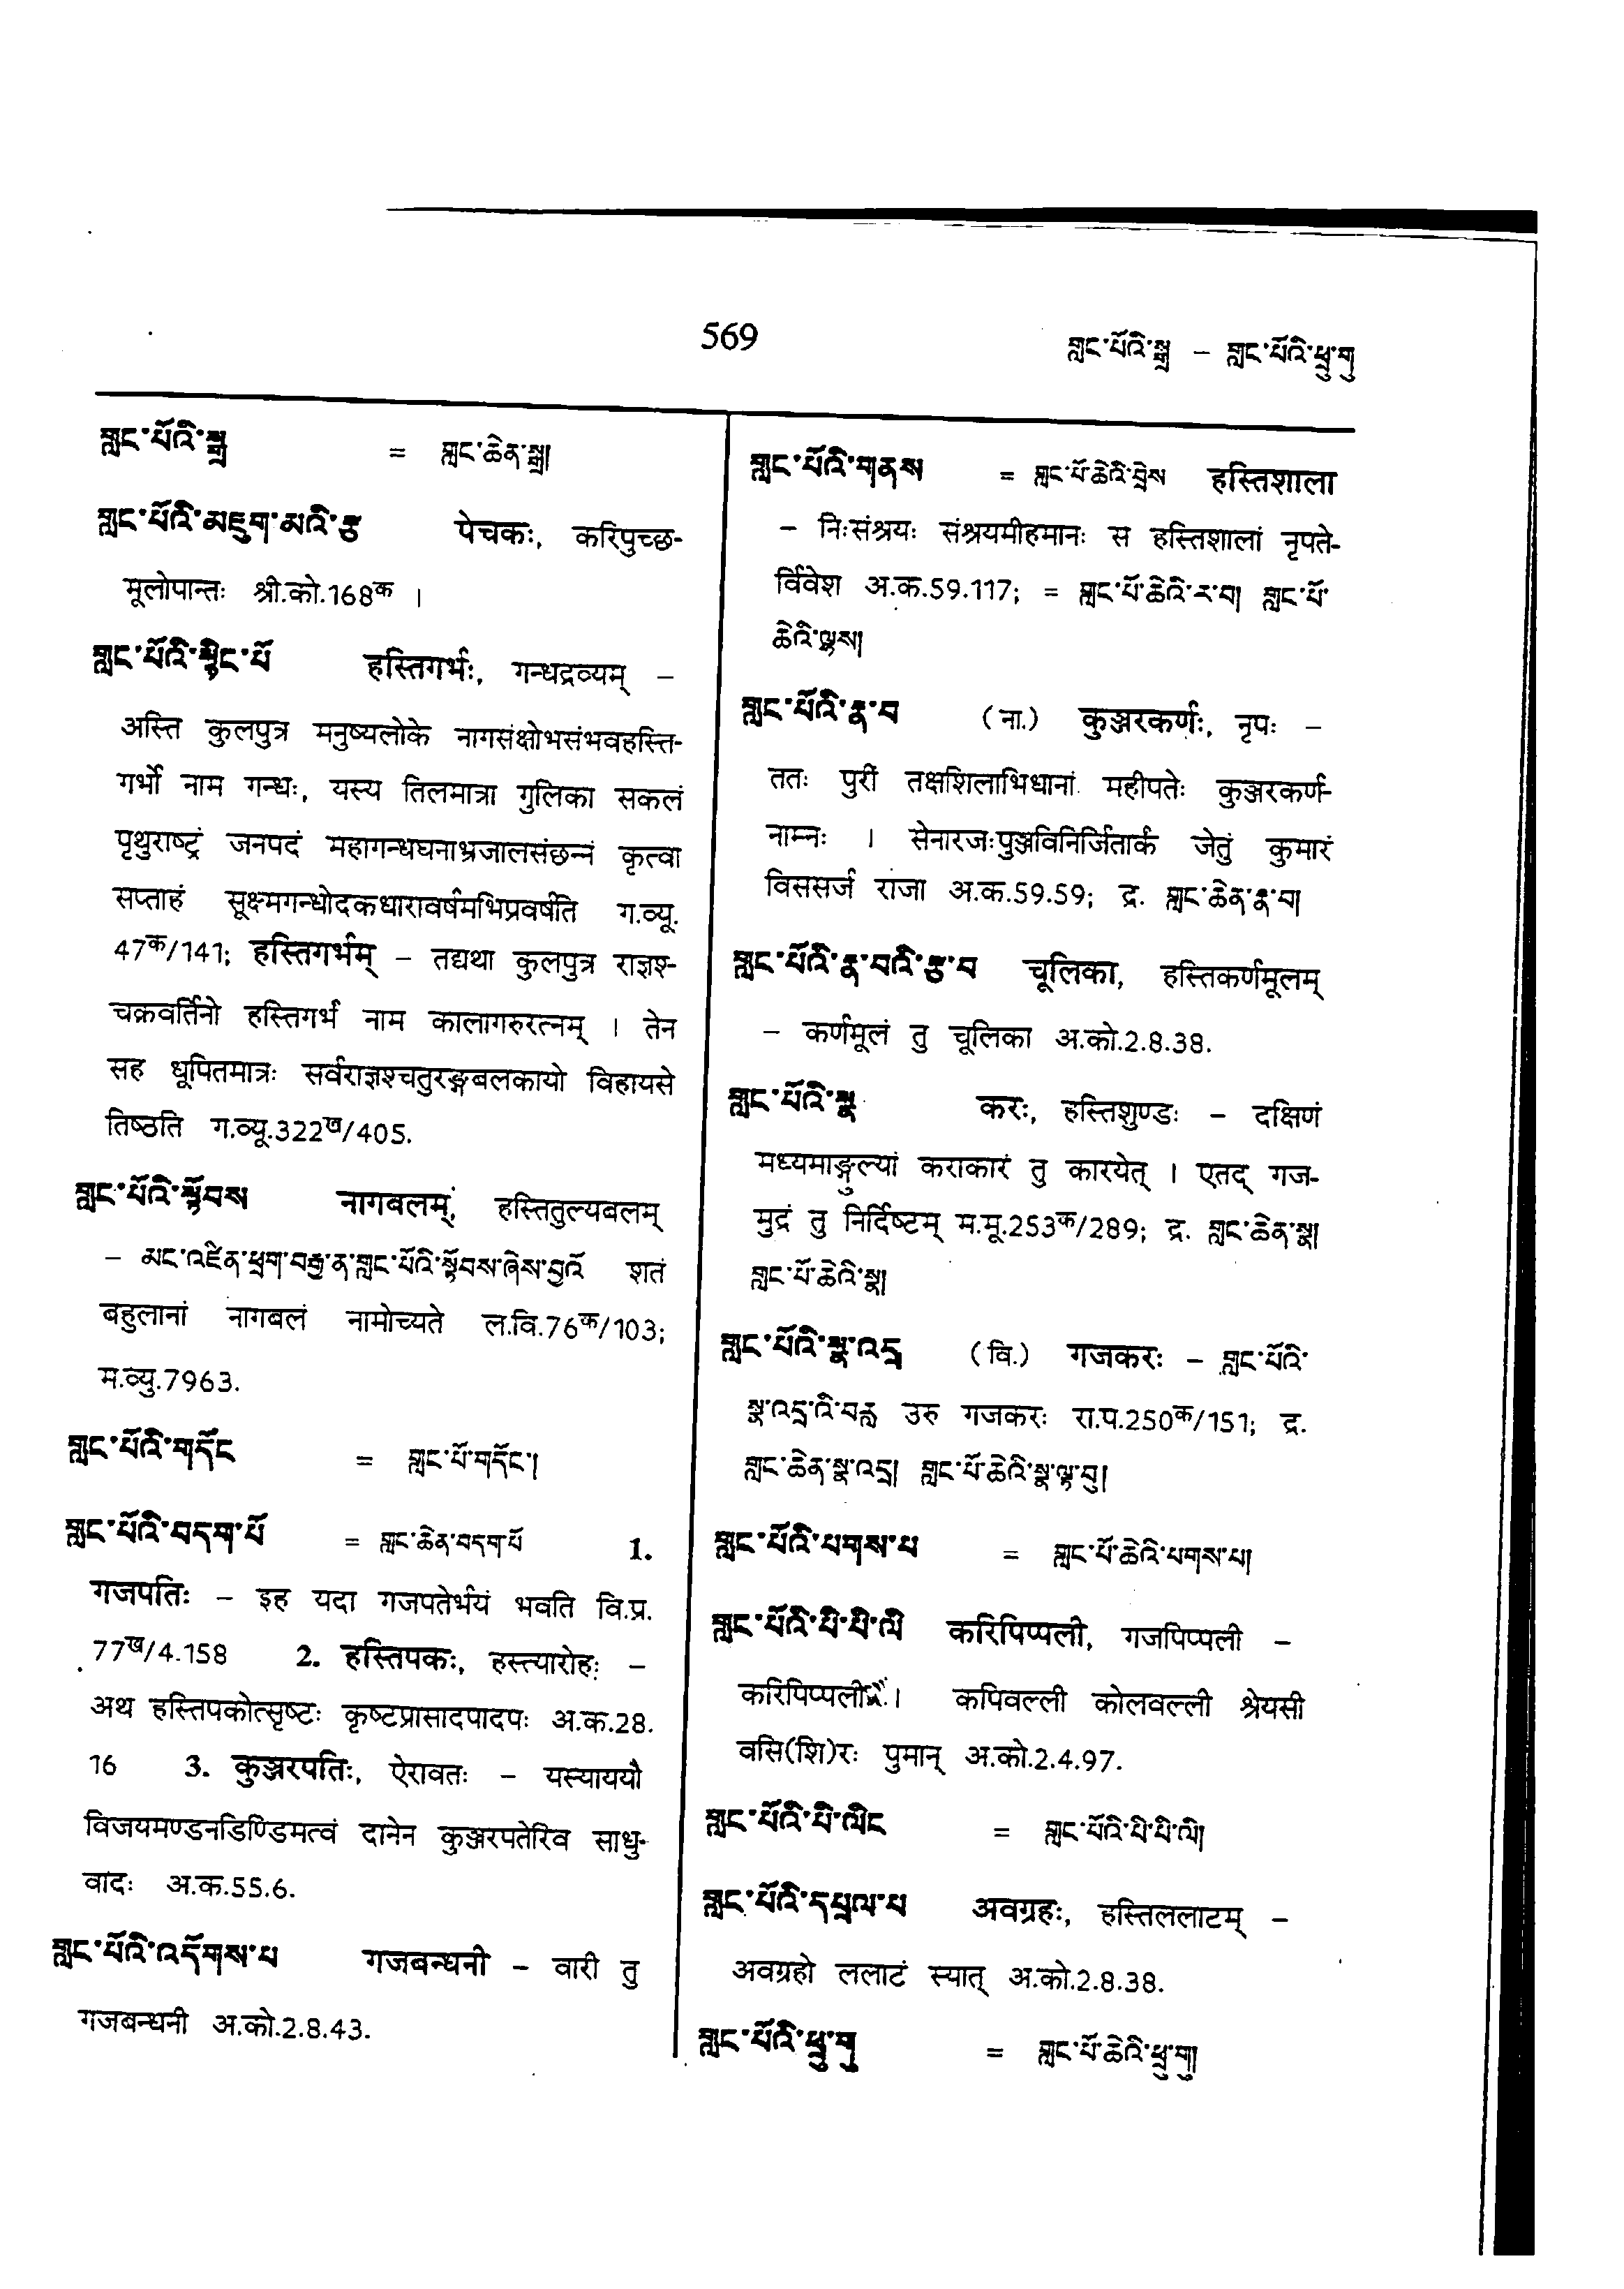 569
གླང་པོའི་སྒྲ – གླང་པོའི་ཕྲུ་གུ
གླང་པོའི་སྒྲ = གླང་ཆེན་སྒྲ།
གླང་པོའི་མཇུག་མའི་རྩ पेचकः, करिपुच्छ-
मूलोपान्तः श्री.को.168क ।
གླང་པོའི་སྙིང་པོ हस्तिगर्भः, गन्धद्रव्यम् –
अस्ति कुलपुत्र मनुष्यलोके नागसंक्षोभसंभवहस्ति-
गर्भो नाम गन्धः, यस्य तिलमात्रा गुलिका सकलं
पृथुराष्ट्रं जनपदं महागन्धघनाभ्रजालसंछन्नं कृत्वा
सप्ताहं सूक्ष्मगन्धोदकधारावर्षमभिप्रवर्षति ग.व्यू.
47क/141; हस्तिगर्भम् – तद्यथा कुलपुत्र राज्ञश्-
चक्रवर्तिनो हस्तिगर्भं नाम कालागरुरत्नम् । तेन
सह धूपितमात्रः सर्वराज्ञश्चतुरङ्गबलकायो विहायसे
तिष्ठति ग.व्यू.322ख/405.
གླང་པོའི་སྟོབས नागबलम्, हस्तितुल्यबलम्
– མང་འཛིན་ཕྲག་བརྒྱ་ན་གླང་པོའི་སྟོབས་ཞེས་བྱའོ शतं
बहुलानां नागबलं नामोच्यते ल.वि.76क/103;
म.व्यु.7963.
གླང་པོའི་གདོང = གླང་པོ་གདོང་།
གླང་པོའི་བདག་པོ = གླང་ཆེན་བདག་པོ 1.
गजपतिः – इह यदा गजपतेर्भयं भवति वि.प्र.
77ख/4.158 2. हस्तिपकः, हस्त्यारोहः –
अथ हस्तिपकोत्सृष्टः कृष्टप्रासादपादपः अ.क.28.
16 3. कुञ्जरपतिः, ऐरावतः – यस्याययौ
विजयमण्डनडिण्डिमत्वं दानेन कुञ्जरपतेरिव साधु-
वादः अ.क.55.6.
གླང་པོའི་འདོགས་པ गजबन्धनी – वारी तु
गजबन्धनी अ.को.2.8.43.
གླང་པོའི་གནས = གླང་པོ་ཆེའི་བྲེས हस्तिशाला
– निःसंश्रयः संश्रयमीहमानः स हस्तिशालां नृपते-
र्विवेश अ.क.59.117; = གླང་པོ་ཆེའི་ར་བ། གླང་པོ་
ཆེའི་ལྷས།
གླང་པོའི་རྣ་བ (ना.) कुञ्जरकर्णः, नृपः –
ततः पुरीं तक्षशिलाभिधानां महीपतेः कुञ्जरकर्ण-
नाम्नः । सेनारजःपुञ्जविनिर्जितार्कं जेतुं कुमारं
विससर्ज राजा अ.क.59.59; द्र. གླང་ཆེན་རྣ་བ།
གླང་པོའི་རྣ་བའི་རྩ་བ चूलिका, हस्तिकर्णमूलम्
– कर्णमूलं तु चूलिका अ.को.2.8.38.
གླང་པོའི་སྣ करः, हस्तिशुण्डः – दक्षिणं
मध्यमाङ्गुल्यां कराकारं तु कारयेत् । एतद् गज-
मुद्रं तु निर्दिष्टम् म.मू.253क/289; द्र. གླང་ཆེན་སྣ།
གླང་པོ་ཆེའི་སྣ།
གླང་པོའི་སྣ་འདྲ (वि.) गजकरः – གླང་པོའི་
སྣ་འདྲ་འི་བརླ उरु गजकरः रा.प.250क/151; द्र.
གླང་ཆེན་སྣ་འདྲ། གླང་པོ་ཆེའི་སྣ་ལྟ་བུ།
གླང་པོའི་པགས་པ = གླང་པོ་ཆེའི་པགས་པ།
གླང་པོའི་པི་པི་ལི करिपिप्पली, गजपिप्पली –
करिपिप्पली । कपिवल्ली कोलवल्ली श्रेयसी
वसि(शि)रः पुमान् अ.को.2.4.97.
གླང་པོའི་པི་ལིང = གླང་པོའི་པི་པི་ལི།
གླང་པོའི་དཔྲལ་པ अवग्रहः, हस्तिललाटम् –
अवग्रहो ललाटं स्यात् अ.को.2.8.38.
གླང་པོའི་ཕྲུ་གུ = གླང་པོ་ཆེའི་ཕྲུ་གུ།